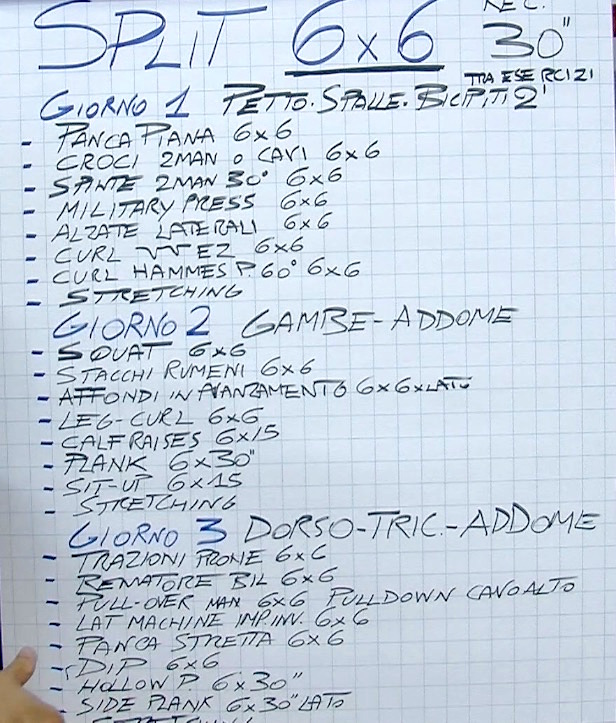 SPLIT 6x6 REC. 30"
TRA ESERCIZI 2'
GIORNO 1 PETTO. SPALLE. BICIPITI
- PANCA PIANA 6x6
- CROCI 2MAN O CAVI 6x6
- SPINTE 2MAN 30° 6x6
- MILITARY PRESS 6x6
- ALZATE LATERALI 6x6
- CURL EZ 6x6
- CURL HAMMES P. 60° 6x6
- STRETCHING
GIORNO 2 GAMBE-ADDOME
- SQUAT 6x6
- STACCHI RUMENI 6x6
- AFFONDI IN AVANZAMENTO 6x6xLATO
- LEG-CURL 6x6
- CALF RAISES 6x15
- PLANK 6x30"
- SIT-UP 6x15
- STRETCHING
GIORNO 3 DORSO-TRIC.-ADDOME
- TRAZIONI PRONE 6x6
- REMATORE BIL 6x6
- PULL-OVER MAN 6x6 PULLDOWN CAVO ALTO
- LAT MACHINE IMP. INV. 6x6
- PANCA STRETTA 6x6
- DIP 6x6
- HOLLOW P. 6x30"
- SIDE PLANK 6x30" LATO